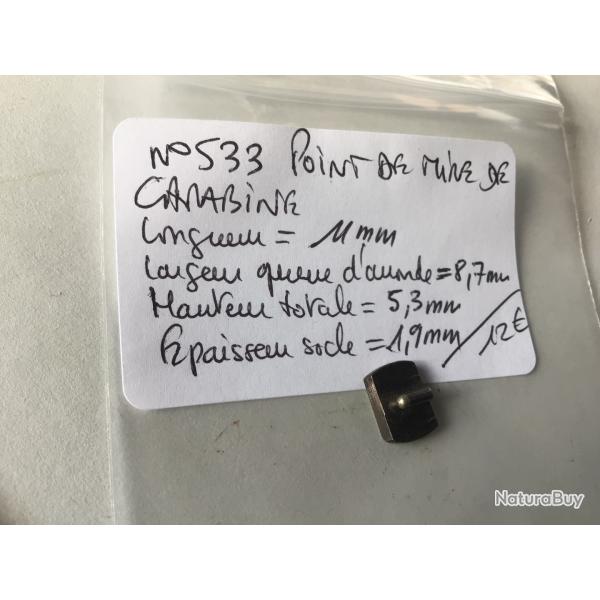 N°533 POINT DE MIRE DE
CARABINE
Longueur = 11 mm
Largeur queue d'aronde = 8,7mm
Hauteur totale = 5,3mm
Epaisseur socle = 1,9mm / 12€
NaturaBuy